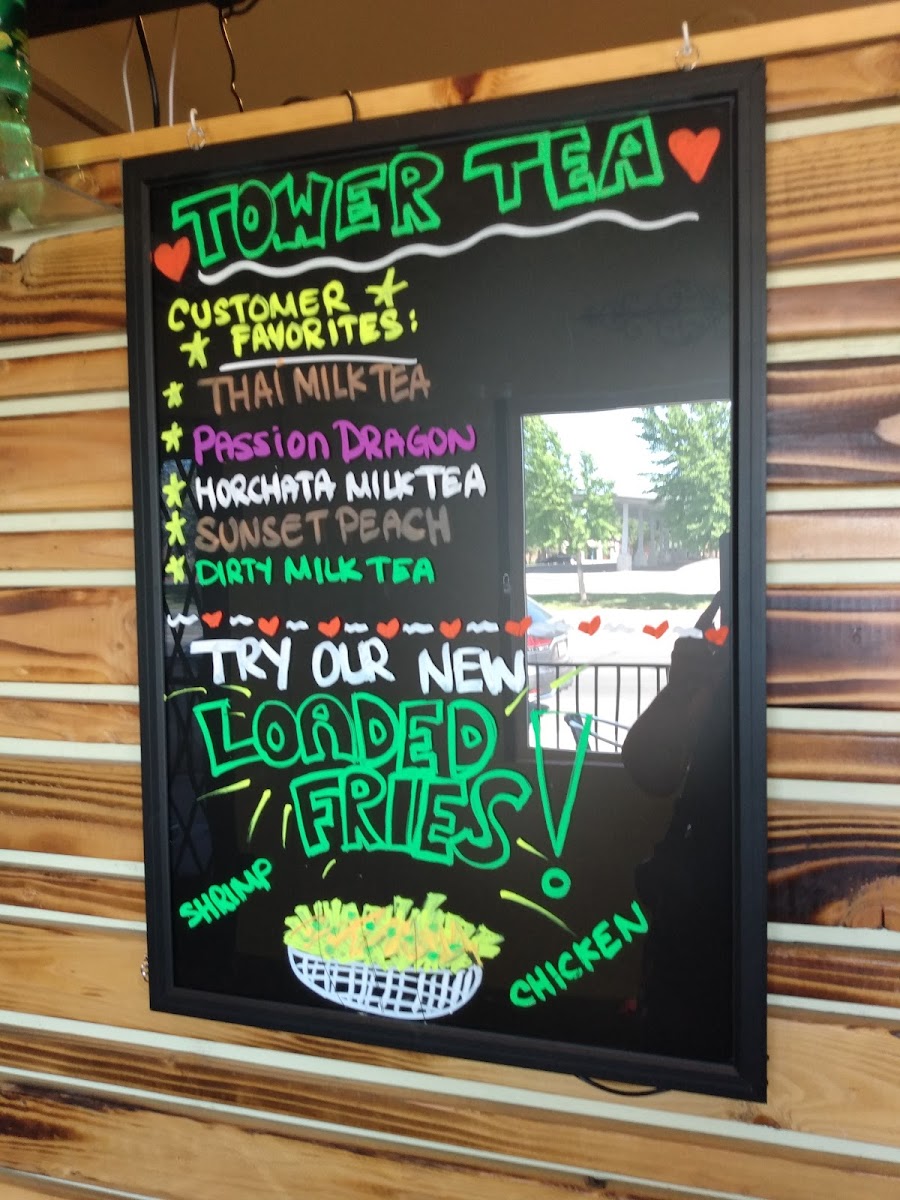 TOWER TEA
CUSTOMER
FAVORITES:
THAI MILK TEA
PASSION DRAGON
HORCHATA MILK TEA
SUNSET PEACH
DIRTY MILK TEA
TRY OUR NEW
LOADED
FRIES!
SHRIMP
CHICKEN